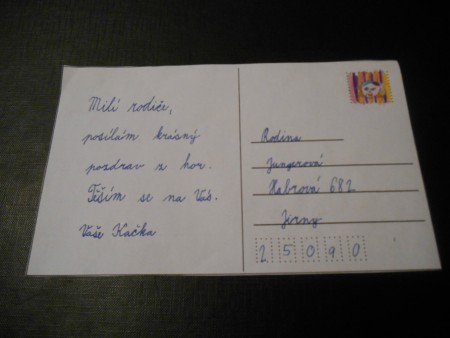 Milí rodiče,
posílám krásný
pozdrav z hor.
Těším se na Vás.
Vaše Kačka
Rodina
Jungerová
Habrová 682
Jirny
25090